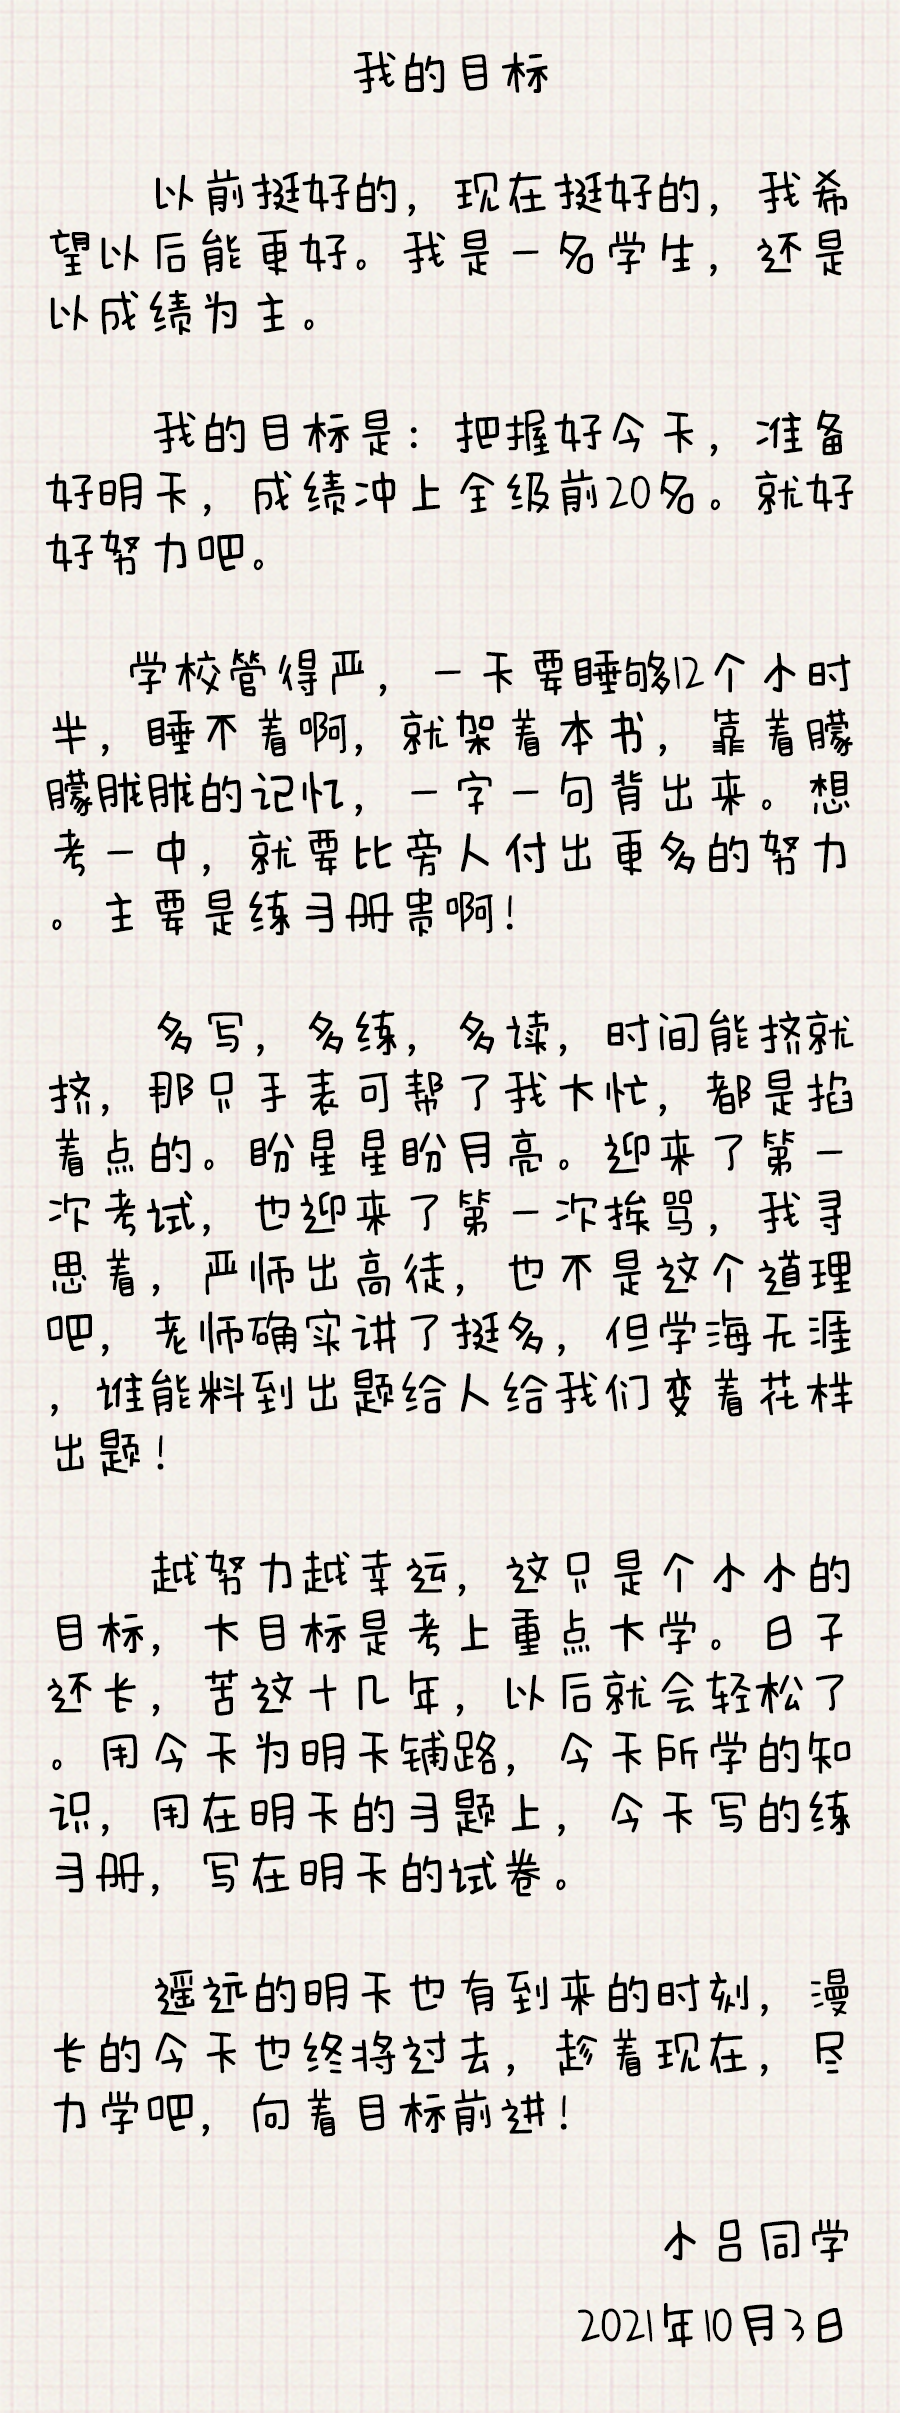 我的目标
以前挺好的，现在挺好的，我希
望以后能更好。我是一名学生，还是
以成绩为主。
我的目标是：把握好今天，准备
好明天，成绩冲上全级前20名。就好
好努力吧。
学校管得严，一天要睡够12个小时
半，睡不着啊，就架着本书，靠着朦
朦胧胧的记忆，一字一句背出来。想
考一中，就要比旁人付出更多的努力
。主要是练习册贵啊！
多写，多练，多读，时间能挤就
挤，那只手表可帮了我大忙，都是掐
着点的。盼星星盼月亮。迎来了第一
次考试，也迎来了第一次挨骂，我寻
思着，严师出高徒，也不是这个道理
吧，老师确实讲了挺多，但学海无涯
，谁能料到出题给人给我们变着花样
出题！
越努力越幸运，这只是个小小的
目标，大目标是考上重点大学。日子
还长，苦这十几年，以后就会轻松了
。用今天为明天铺路，今天所学的知
识，用在明天的习题上，今天写的练
习册，写在明天的试卷。
遥远的明天也有到来的时刻，漫
长的今天也终将过去，趁着现在，尽
力学吧，向着目标前进！
小吕同学
2021年10月3日